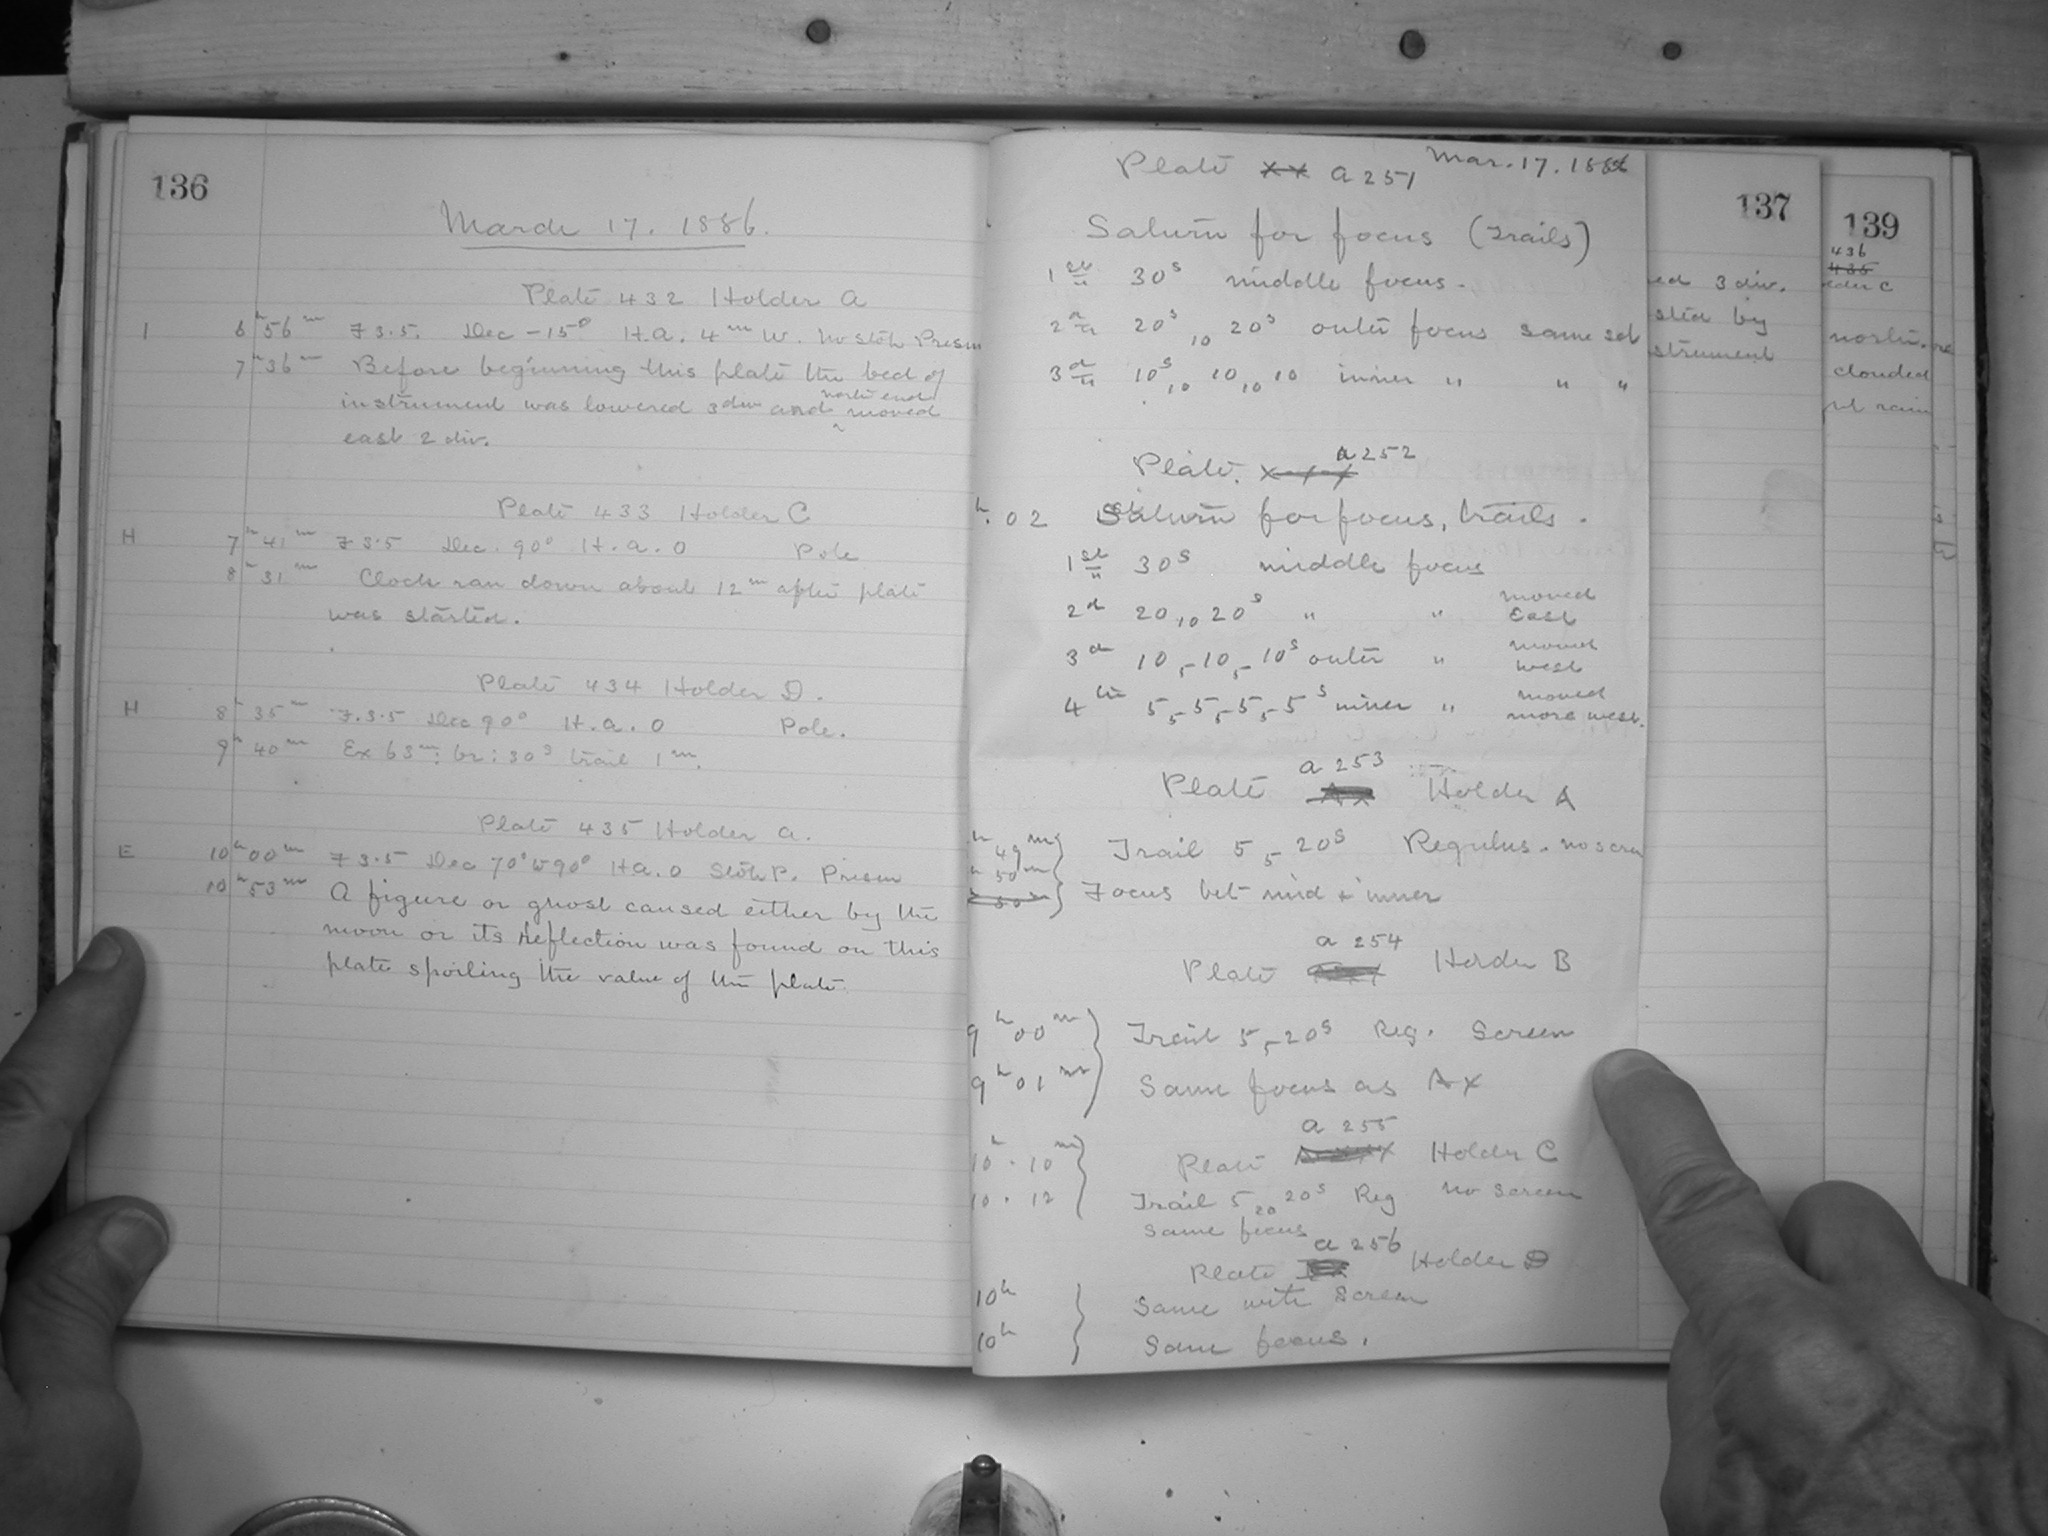 136
March 17. 1886.
Plate 432 Holder A
I 6h 56m F 3.5. Dec -15° H.A. 4m W. No Stoh Prism
7h 36m Before beginning this plate the bed of
instrument was lowered 3 div and north end moved
east 2 div.
Plate 433 Holder C
H 7h 41m F 3.5 Dec. 90° H.a. 0 Pole
8h 31m Clock ran down about 12m after plate
was started.
Plate 434 Holder D.
H 8h 35m F. 3.5 Dec 90° H.a. 0 Pole.
9h 40m Ex 63m: br: 30s trail 1m.
Plate 435 Holder a.
E 10h 00m F 3.5 Dec 70° to 90° Ha. 0 Stoh P. Prism
10h 53m A figure or ghost caused either by the
moon or its reflection was found on this
plate spoiling the value of the plate.
Mar. 17. 1886
Plate xx a 251
Saturn for focus (Trails)
1st 30s middle focus.
2d 20s 10 20s outer focus same set
3d 10s 10 10 10 10 inner " " "
Plate. a 252
h. 02 Saturn for focus, trails.
1st 30s middle focus
2d 20 10 20s " " moved East
3d 10 5 10 5 10s outer " moved west
4th 5 5 5 5 5 5 5s inner " moved more west.
Plate a 253 Holder A
h 49m Trail 5 5 20s Regulus. no scre
h 50m Focus bet mid & inner
Plate a 254 Holder B
9h 00m Trail 5 5 20s Reg. Screen
9h 01m Same focus as AX
a 255
10h. 10m Plate Holder C
10. 12 Trail 5 20 20s Reg no screen
Same focus
Plate a 256 Holder D
10h Same with Screen
10h Same focus.
137
ed 3 div.
sted by
strument
139
436
435
lder C
north.
clouded
rain